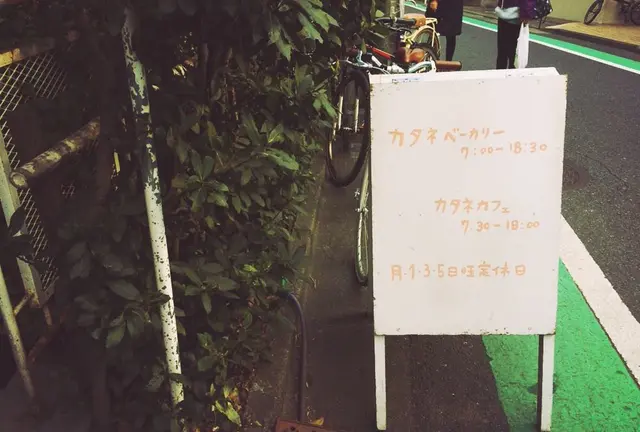 カタネベーカリー
7:00-18:30
カタネカフェ
7.30-18:00
月・1・3・5日旺定休日